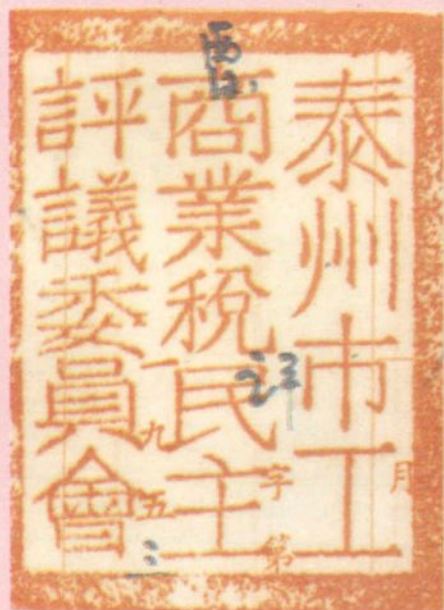 泰州市工
商業稅民主
評議委員會
月
字第
一九五三